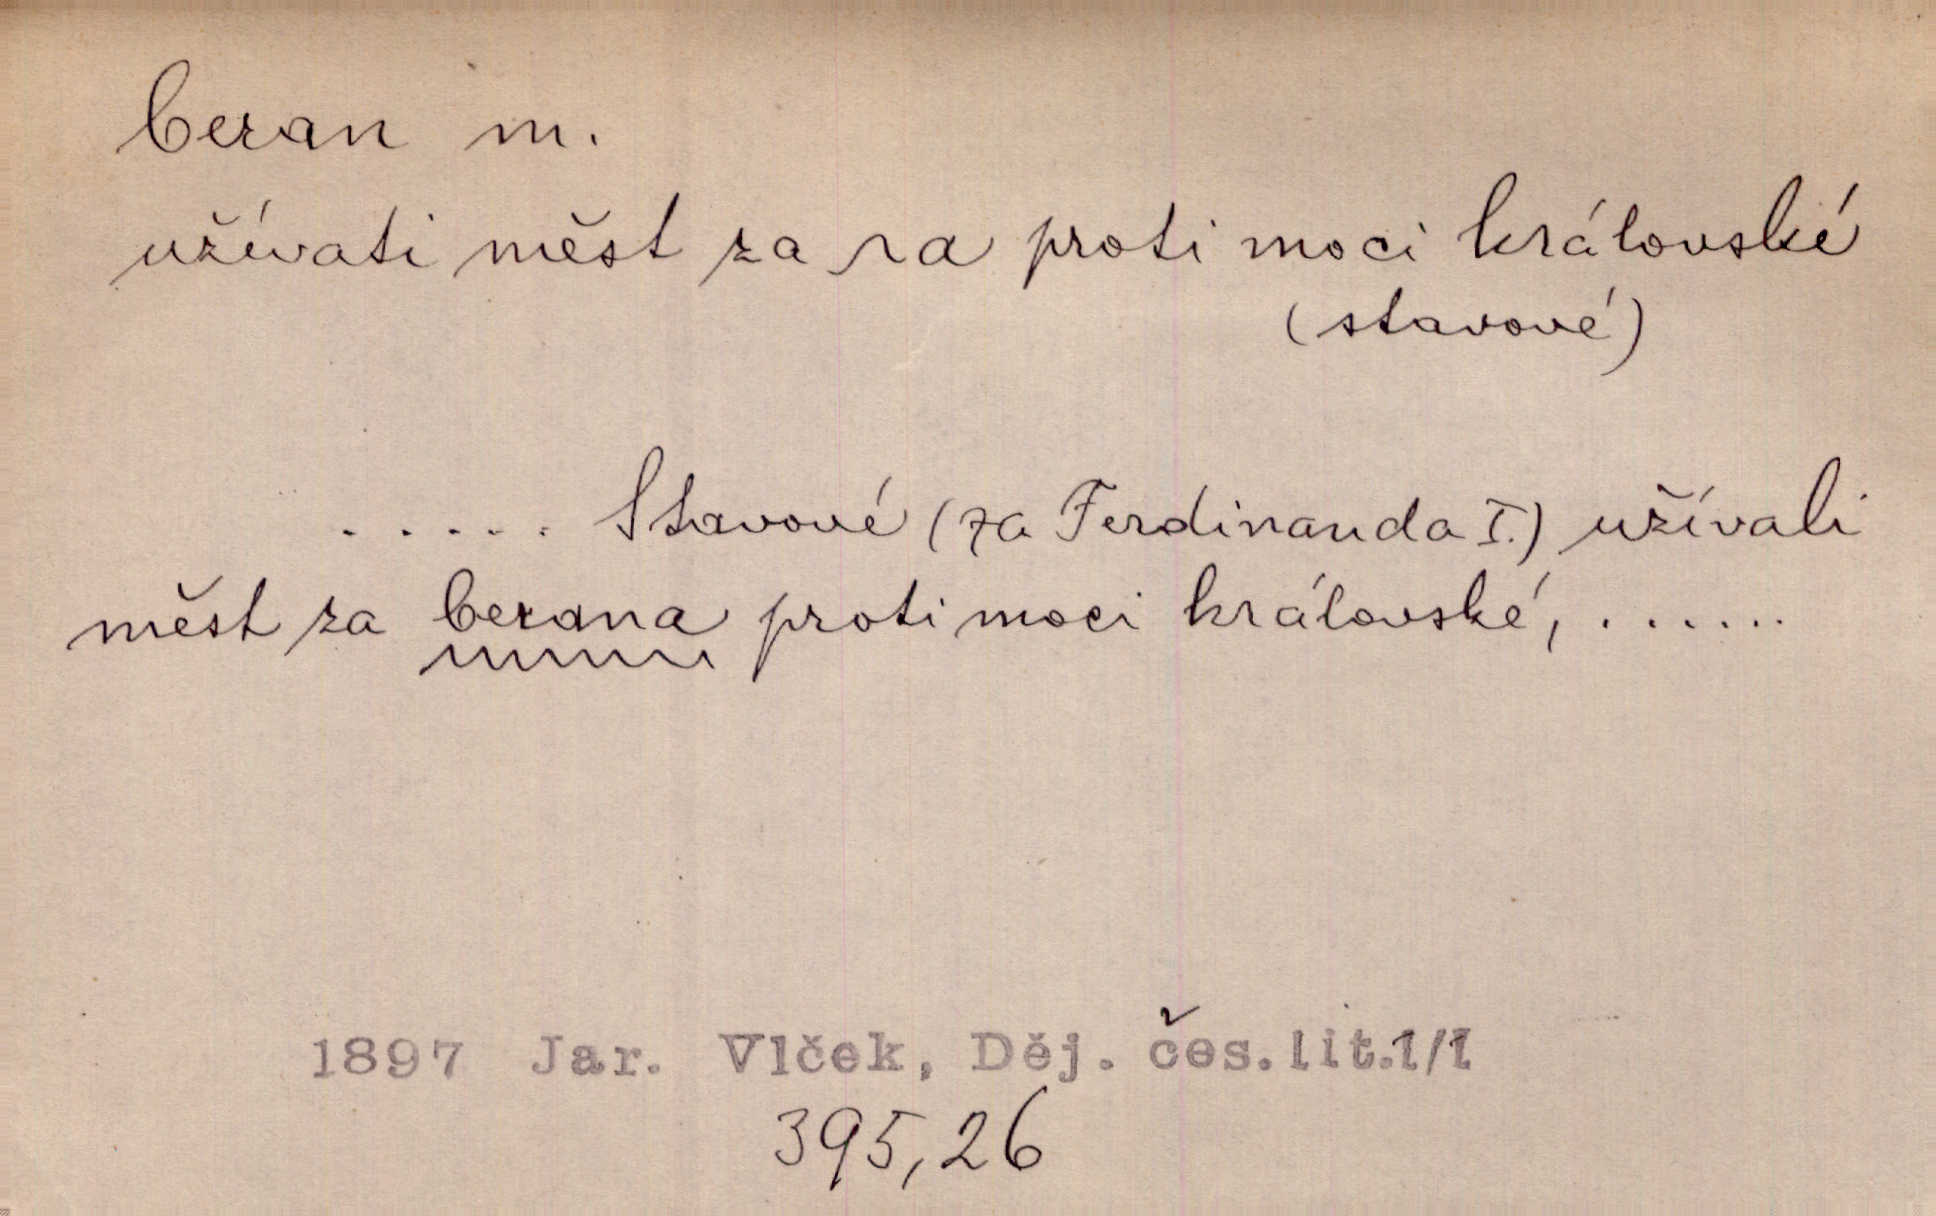 beran m.
užívati měst za ~a proti moci královské
(stavové)
..... Stavové (za Ferdinanda I.) užívali
měst za berana proti moci královské, .......
1897 Jar. Vlček, Děj. čes. lit. 1/1
395,26